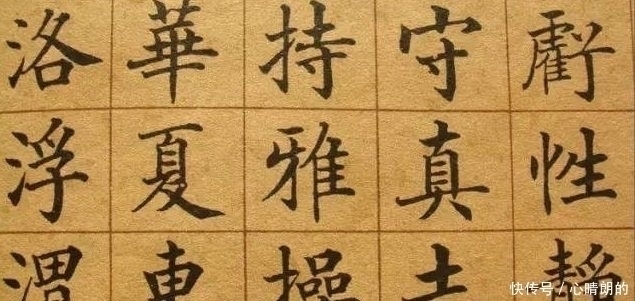 虧性靜
守真志
持雅操
華夏東
洛浮渭
快传号/心晴朗的